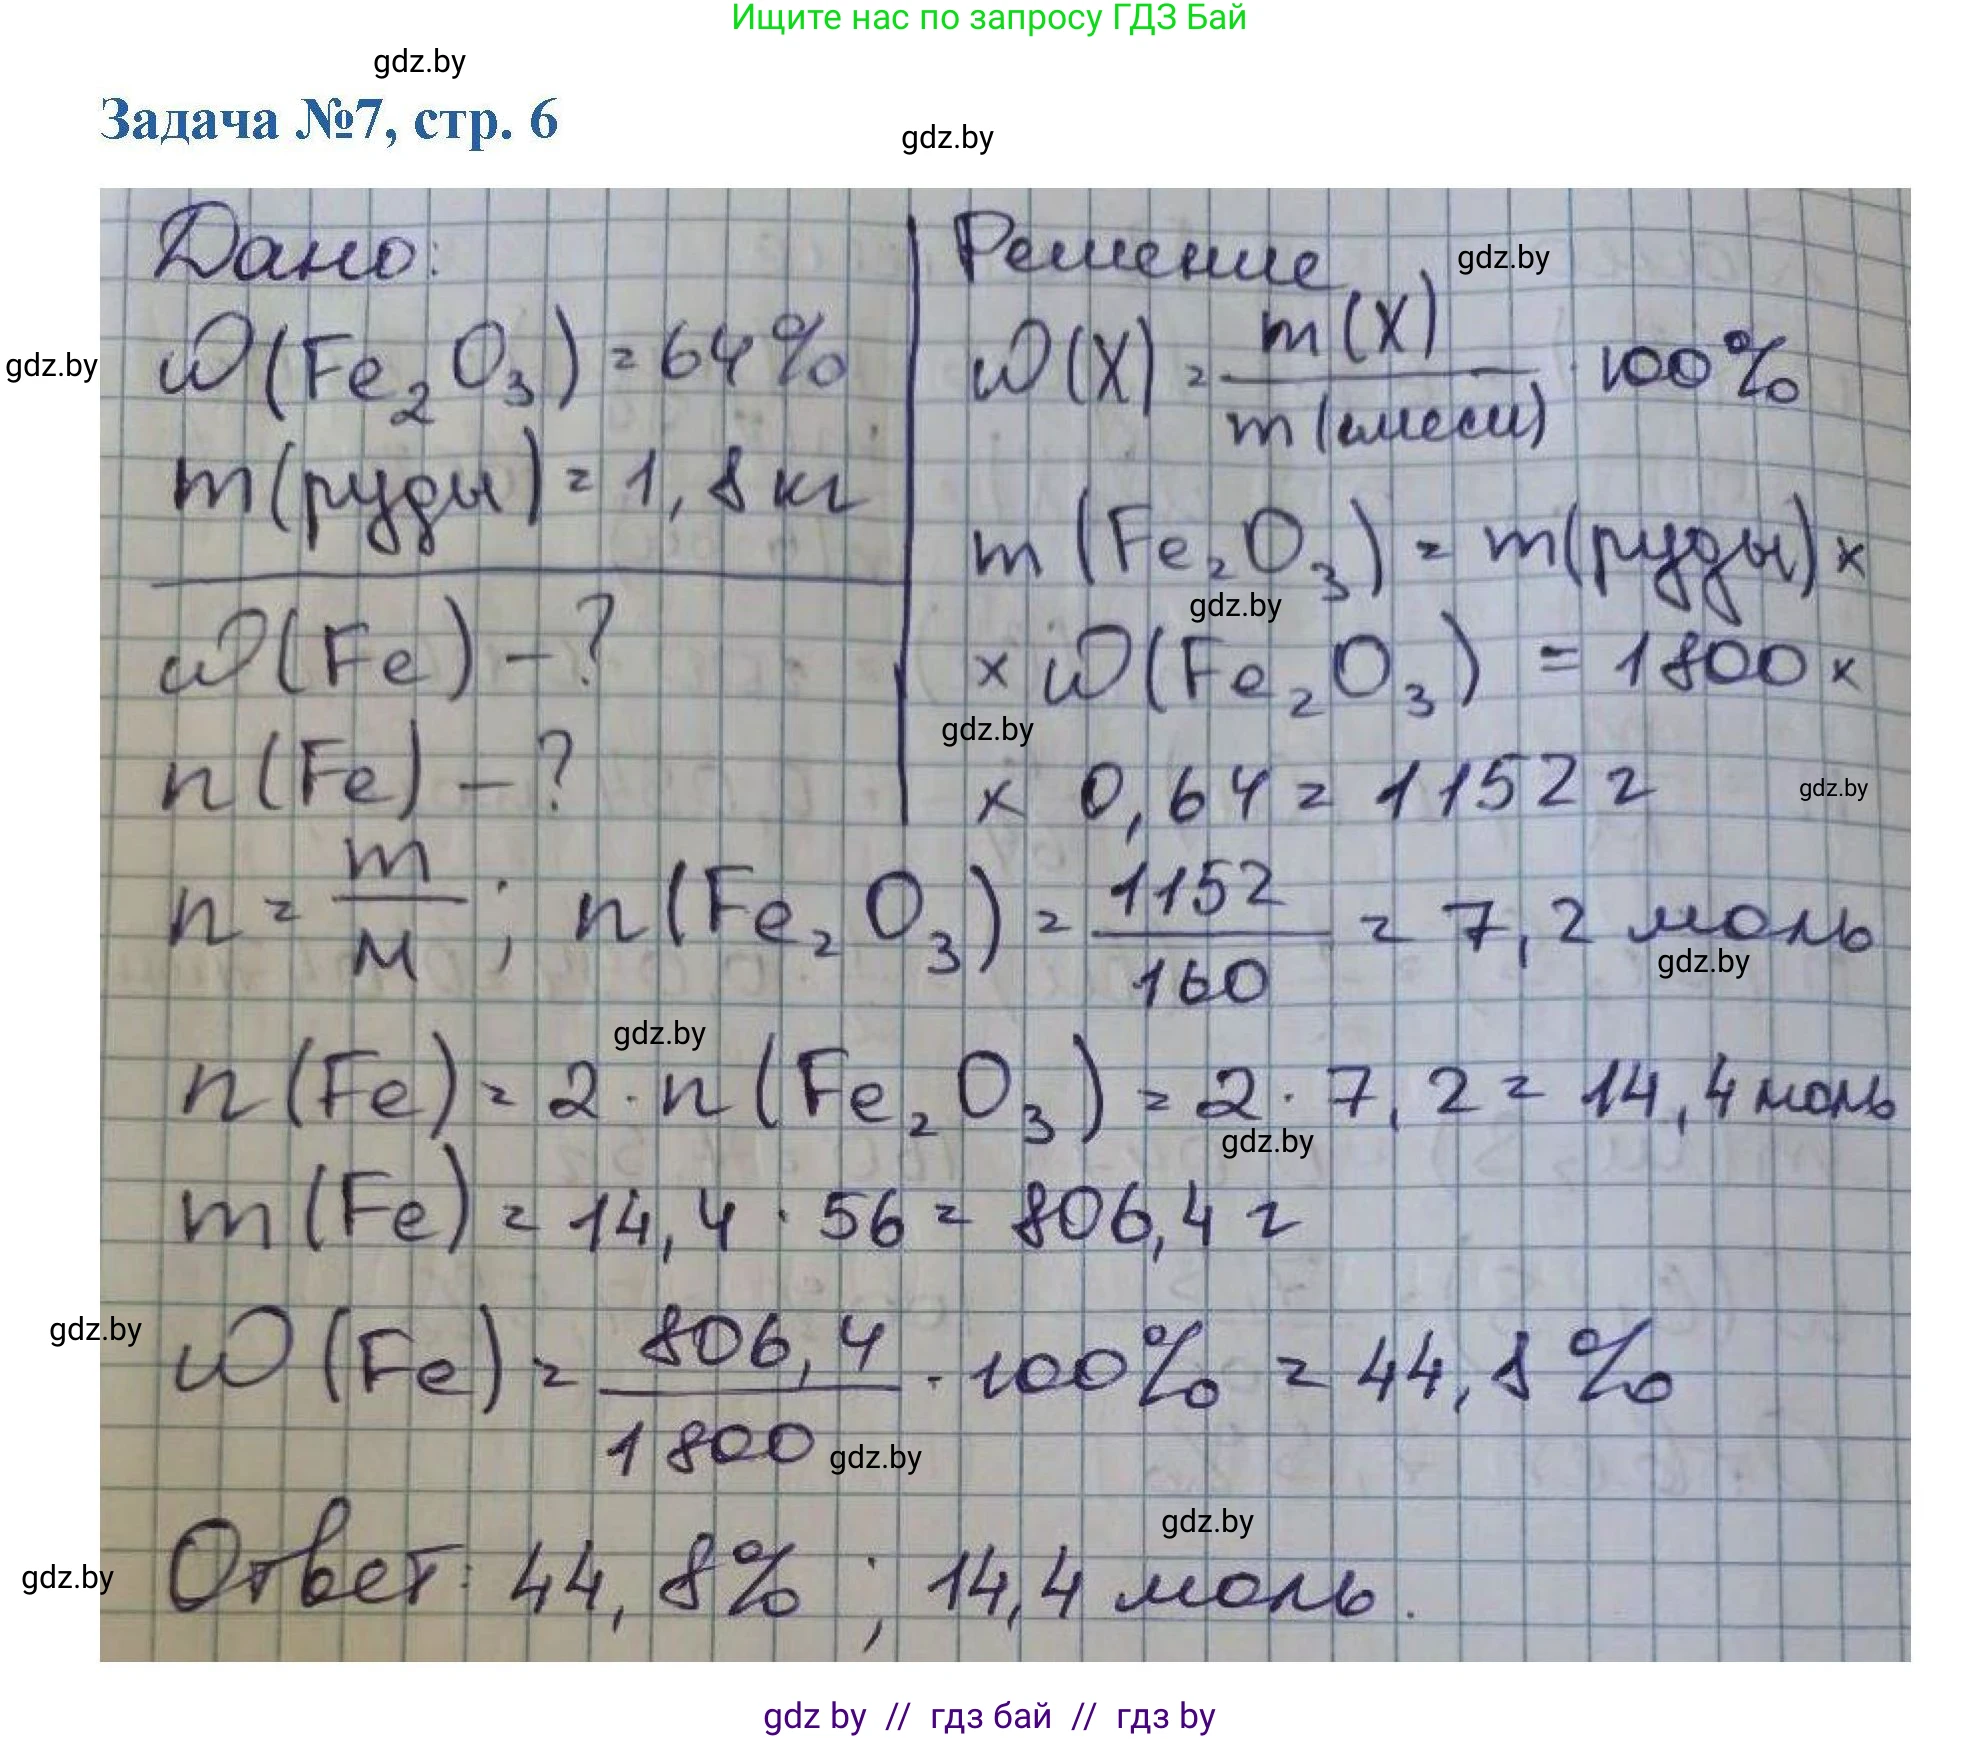 Ищите нас по запросу ГДЗ Бай
gdz.by
Задача №7, стр. 6
gdz.by
Дано:
w(Fe₂O₃) = 64%
m(руды) = 1,8 кг
w(Fe) - ?
n(Fe) - ?
Решение
gdz.by
w(X) = m(X) / m(смеси) · 100%
gdz.by
m(Fe₂O₃) = m(руды) ×
gdz.by
× w(Fe₂O₃) = 1800 ×
gdz.by
× 0,64 = 1152 г
gdz.by
n = m / M ; n(Fe₂O₃) = 1152 / 160 = 7,2 моль
gdz.by
gdz.by
n(Fe) = 2 · n(Fe₂O₃) = 2 · 7,2 = 14,4 моль
gdz.by
m(Fe) = 14,4 · 56 = 806,4 г
gdz.by
w(Fe) = 806,4 / 1800 · 100% = 44,8 %
gdz.by
gdz.by
gdz.by
Ответ: 44,8% ; 14,4 моль.
gdz by // гдз бай // гдз by